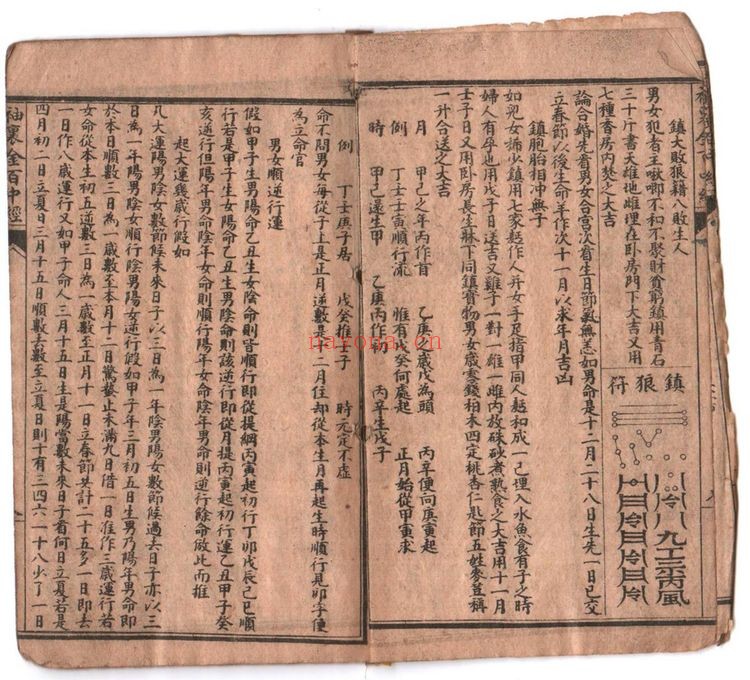 鎮大敗狼籍八敗生人
男女犯者主啾唧不和不聚財貧窮鎮用青石
三十斤書天雄地雌埋在卧房門下大吉又用
七種香房内焚之大吉
論合婚先看男女合宮次看生日節氣無恙如男命是十二月二十八日生先一日已交
立春節以後生命羊作次十一月以求年月吉凶
鎮胞胎相冲無子
婦人有孕也用戊子日送吉又雞子一對一雄一雌内放硃砂煮熟食之大吉用十一月
壬子日又用卧房長生牀下同鎮寳物男女歲零錢柏木四定桃杏仁匙節五姓麥荳稱
一升合送之大吉
月 甲己之年丙作首 乙庚之歲戊為頭 丙辛便向庚寅起
例 丁壬壬寅順行流 惟有戊癸何處起 正月始從甲寅求
時 甲己還生甲 乙庚丙作初 丙辛生戊子
例 丁壬庚子居 戊癸推壬子 時元定不虛
命不問男女每從子上是正月逆數是十二月住却從本生月再起生時順行見卯字便
為立命官
男女順逆行運
假如甲子生男陽命乙丑生女陰命則皆順行即從提綱丙寅起初行丁卯戊辰己巳順
行若是甲子生女陽命乙丑生男陰命則該逆行即從月提丙寅起初行運乙丑甲子癸
亥逆行但陽年男命陰年女命則順行陽年女命陰年男命則逆行餘命倣此而推
起大運幾歲行假如
凡大運陽男陰女數節候未來日子以三日為一年陰男陽女數節候過去日子亦以三
日為一年陽男陰女順行陰男陽女逆行假如甲子年三月初五日生男乃陽年男命即
於本日順數三日為一歲數至本月十二日驚蟄止未滿九日借一日准作三歲運行若
女命從本生初五逆數三日為一歲數至正月十一日立春節共計二十五多一日即去
一日作八歲運行又如甲子命人三月十五日生是陽當數未來日子看何日立夏若是
四月初二日立夏日三月十五日順數去至立夏日則十有三四六一十八少了一日
袖裏金百中經
鎮狼符
nayona.com